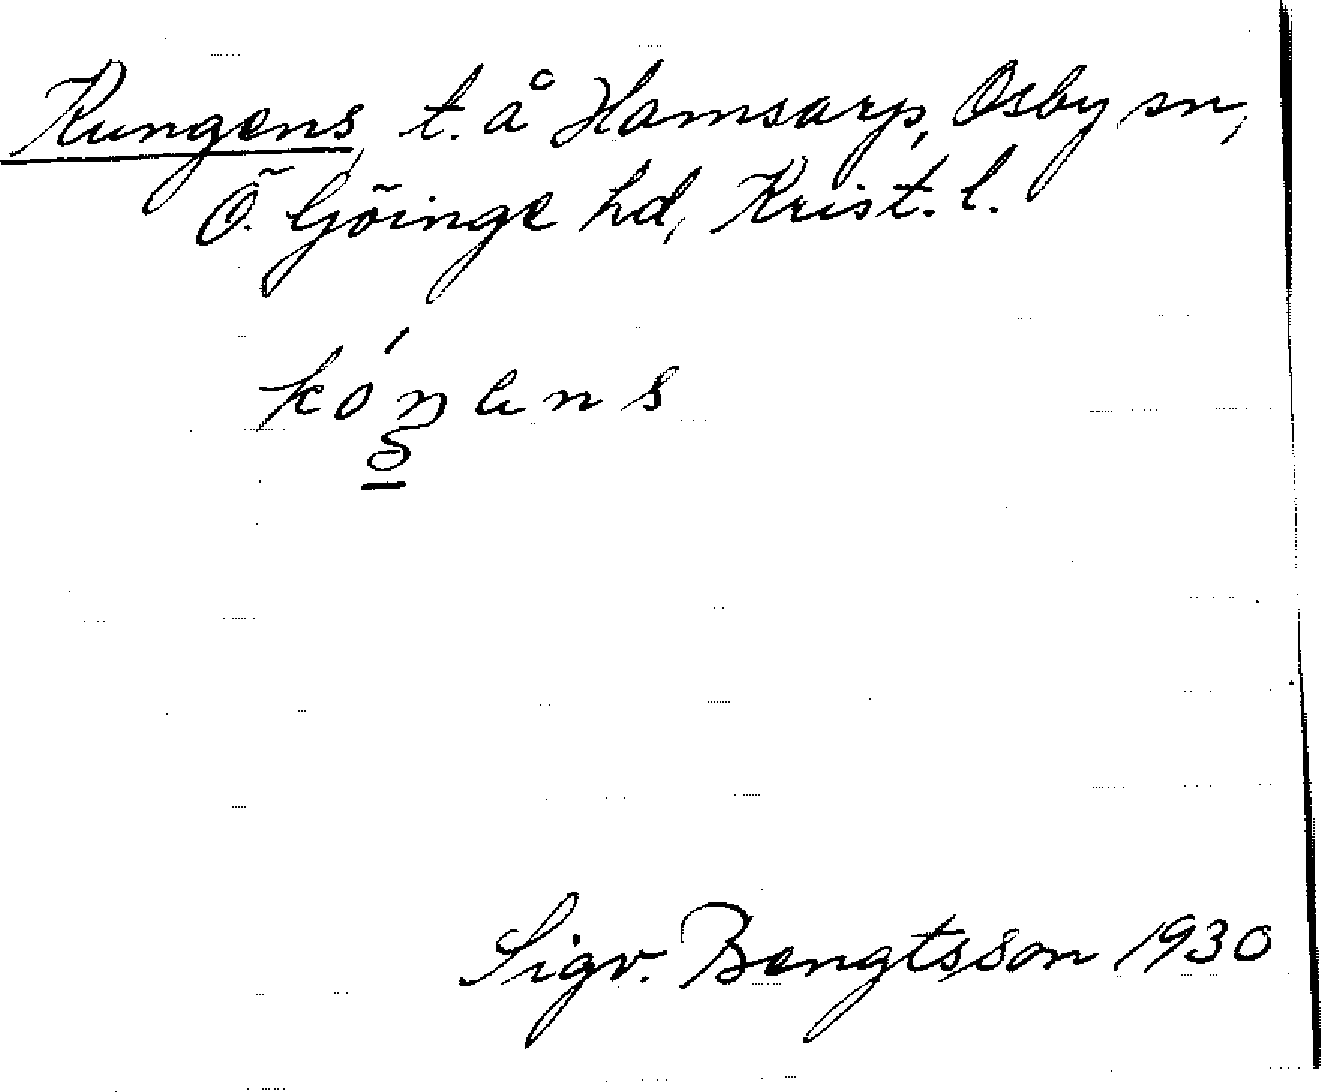 Kungens, t. å Hamsarp, Osby sn,
Ö. Göinge hd, Krist. l.
Sigv. Bengtsson 1930